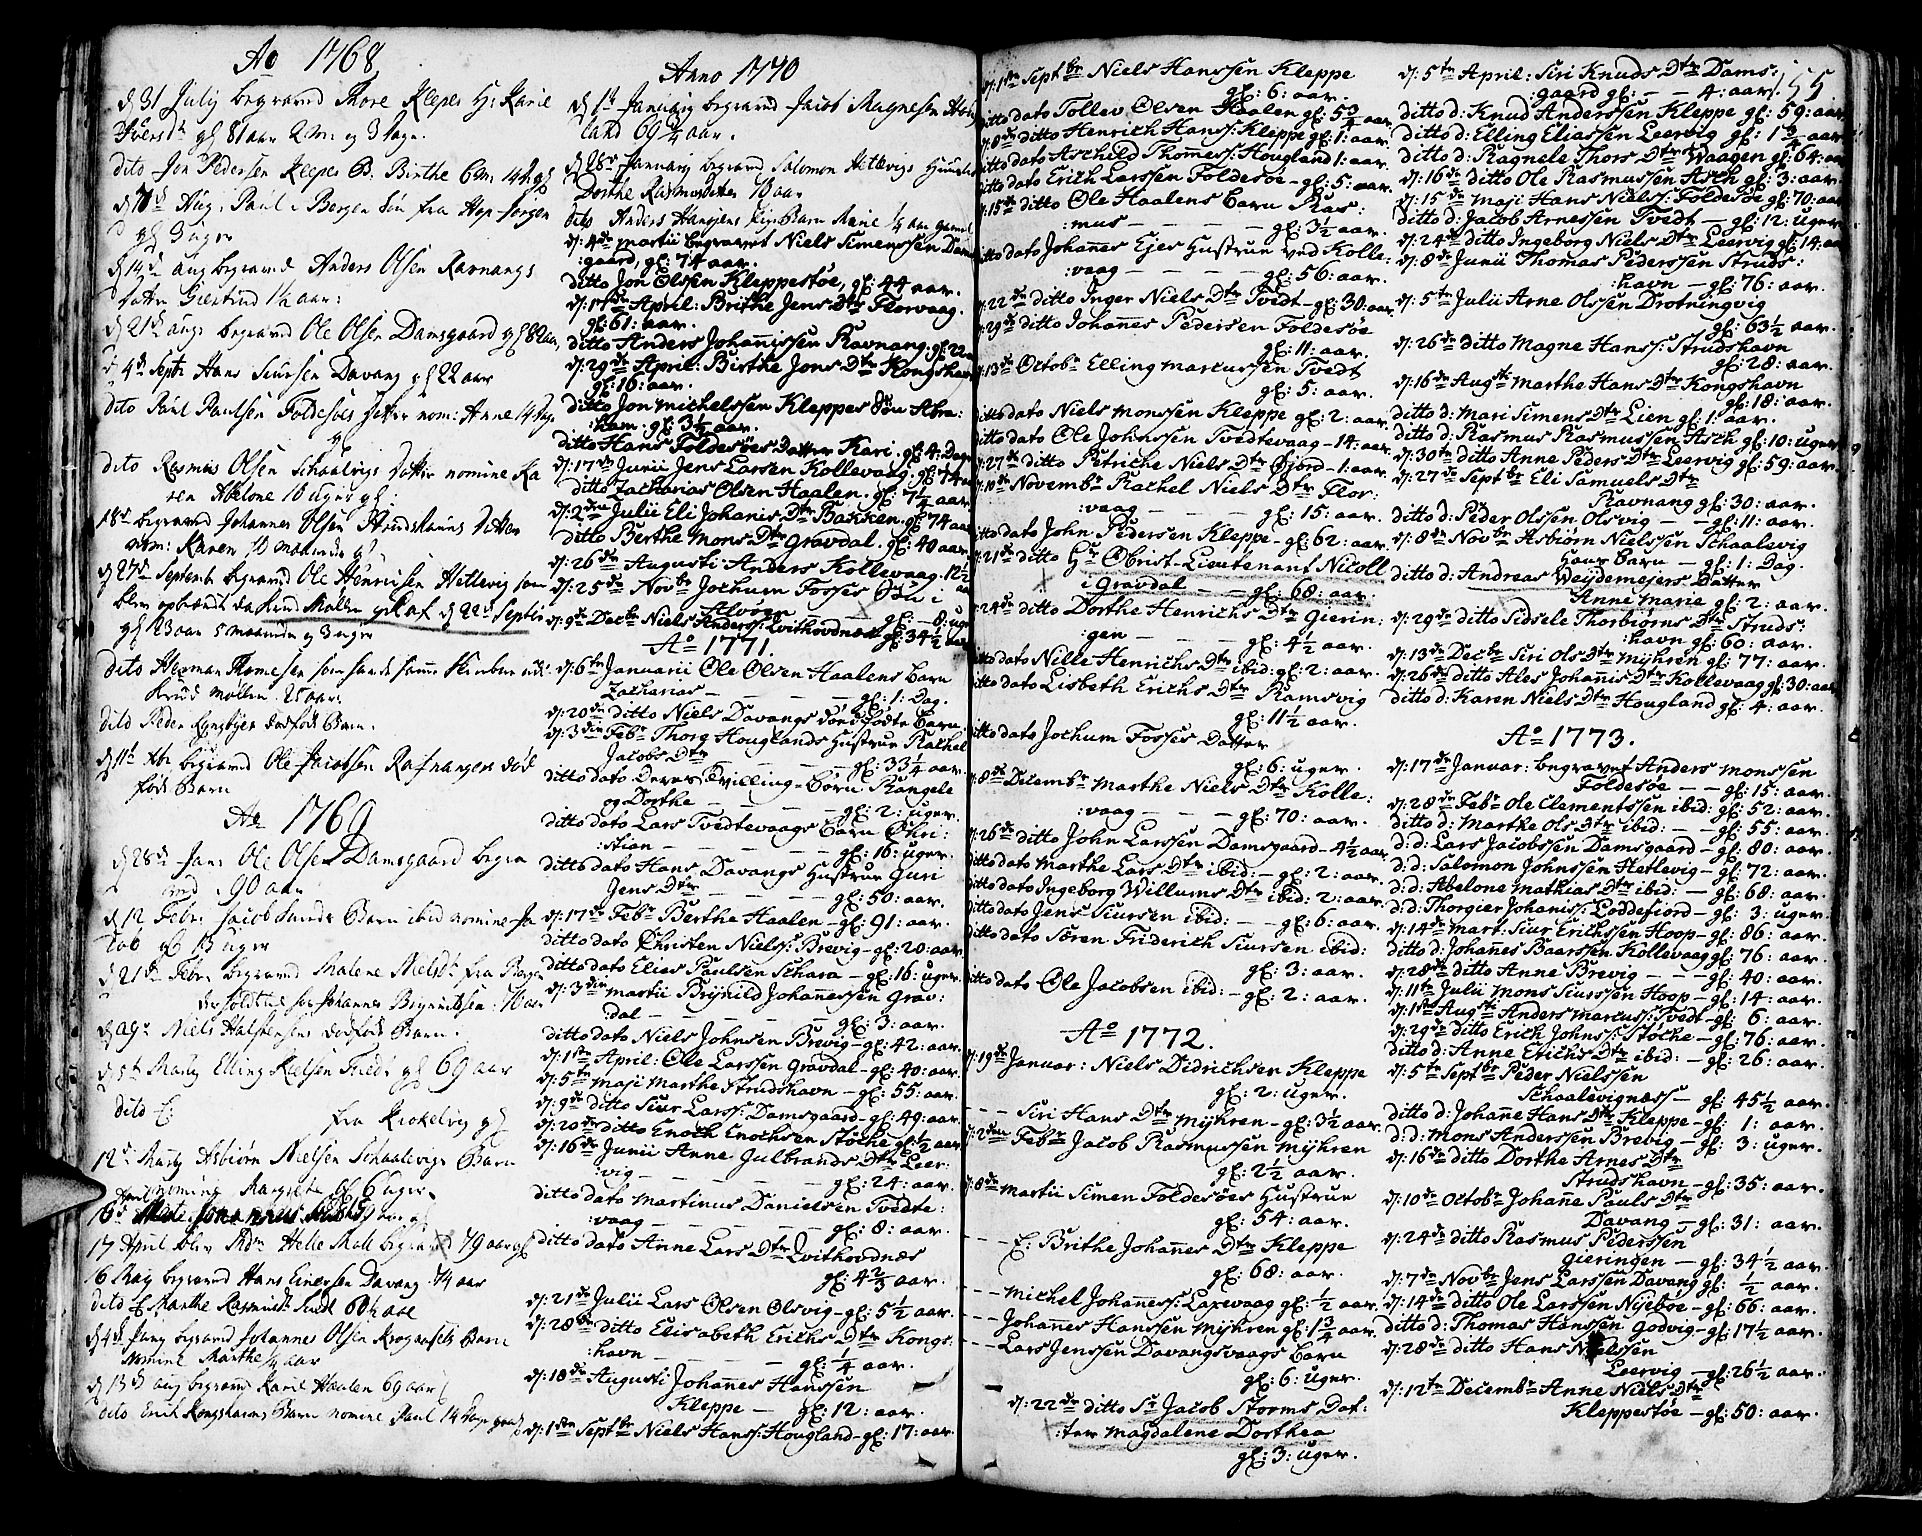 Ao 1768
d 31 July begraved Thore Klepes H: Karie
Siversdr gl 81 aar 2 M: og 3 dage.
dito Jon Pedersen Klepes B. Birthe 6 M: 14 dage
gl 3 uger
d 14d Aug begraved Anders Olsen Ravnangs
datter Giertrud 1½ aar:
d 21d Augs begraved Ole Olsen Damsgaard gl 82 aar
d 4d Septr Hans Siursen Davang gl 22 aar
dito Paul Paulsen Foldesøes datter nom: Anne 14 dage
gl
dito Rasmus Olsen Schaalvigs datter nomine Ka
ren Abelone 16 uger gl:
18d begraved Johannes Olsen Strudshavns datter
nom: Karen 10 maaneder gl
d 27d Septemb begraved Ole Henrichsen Hetlevig som
blev ophængt da Knud Møllen d 22d Septbr
gl 23 aar 5 maaneder og 3 uger
dito Herman Thomesen
Knud Møllen 25 aar.
dito Peder dødfødt Barn.
d 11t Xbr begraved Ole Jacobsen Rafnangers død
født Barn
Ao 1769
d 28d Janr Ole Olsen Damsgaard begra
ved 90 aar
d 12 Febr. Jacob Barn ibid nomine Ja
cob gl 13 uger
d 21de Febr. begraved Malene Nielsdr fra Bergen
Niels Halstensens dødfødt Barn.
d 5t Marty Elling Nielsen Tvedt gl 69 aar
dito
fra Krokelvig gl
12t Marty Asbiørn Nielsen Schaalevigs Barn
nomine Margrete gl 6 uger.
17 April blev Mdm Helle Møll begraved 79 aar gl
16 May begraved Hans Einersen Davang 74 aar
dito Marthe Rasmusdr 60½ aar
begraved Johannes Olsen Barn
Nomine Marthe ¼ aar
d 13d aug begraved Karii Haalen 69 aar
dito Erik Kongshavns Barn nomine Paul 14 dage
Anno 1770
d 1st Januarij begraved Jacob Magnesen
land 69¾ aar.
d 28d January begraved Salomon Hetlevigs Hustrue
Dorthe Rasmusdatter 70 aar
dito Anders Hansens Barn Marie ¼ aar gammel
d: 4de Martii begravet Niels Simenssen Dams
:gaard, gl: 74 aar.
ditto Jon Olsen Kleppestøe, gl: 44 aar.
d: 17de April: Brithe Jens Dtr Florvaag.
gl: 61: aar.
ditto Anders Johanissen Ravnang. gl: 22
d: 29de April: Birthe Jons Dtr Kongshavn
gl: 16: aar.
ditto Jon Michelssen Kleppes Søn Abra:
:ham. gl: 3½ aar.
ditto Hans Foldesøes Datter Kari. gl: 4: Dage
d: 17de Junii Jens Larsen Kollevaag. gl: 74
ditto Zacharias Olsen Haalen. gl: 7¼ aar
d: 2den Julii Eli Johanis Dtr Bakken. gl: 74 aar
ditto Berthe Mons Dtr Gravdal. gl: 40 aar
d: 26de Augusti Anders Kollevaag. 12½
d: 25de Novbr Jochum Fosses Søn i
Alvøen — gl: — 8: uger
d: 9de Decbr Niels Anderss: Qvithovdnæs gl: 34½ aar
Ao 1771.
d: 6te Januarii Ole Olsen Haalens Barn
Zacharias — — — gl: 1: Dag.
d: 20de ditto Niels Davangs dødfødte Barn
d: 3die Febr Thorg Houglands Hustrue Rachel
Jacobs Dtr — — — gl: 33¼ aar.
ditto dato Deres Tvilling-Børn Rangele
og Dorthe — — — gl: 2: uger.
ditto dato Lars Tvedtevaags Barn Chri:
:stian — — — gl: 16: uger.
ditto dato Hans Davangs Hustrue Guri
Jens Dtr — — — gl: 50: aar.
d: 17de Febr Berthe Haalen — gl: 91: aar.
ditto dato Christen Niels: Brevig — gl: 20: aar.
ditto dato Elias Paulsen Schara — gl: 16: uger
d: 3die Martii Brynild Johannessen Grav:
dal — — — gl: 3: aar.
ditto dato Niels Johnsen Brevig — gl: 42: aar.
d: 1ste April: Ole Larssen Gravdal — gl: 40: aar.
d: 5te Maji Marthe Strudshavn — gl: 55: aar.
d: 9de ditto Siur Larss: Damsgaard — gl: 49: aar.
d: 20de ditto Enoch Enochsen Støche gl: ½ aar
d: 16de Junii Anne Julbrands Dtr Leer:
:vig — — — gl: 24: aar.
ditto dato Martinus Danielsen Tvedte:
:vaag — — — gl: 8: aar.
ditto dato Anne Lars Dtr Qvithovdnæs
gl: 4⅔ aar.
d: 21de Julii Lars Olsen Olsvig — gl: 5½ aar.
d: 28de ditto Elisabeth Erichs Dtr Kongs:
:havn — — — gl: ¼ aar.
d: 18de Augusti Johannes Hanssen
Kleppe — gl: 12: aar.
d: 1ste Septbr Niels Hans: Hougland — gl: 17: aar.
d: 1ste Septbr Niels Hanssen Kleppe
gl: 6: aar.
ditto dato Tollev Olsen Haalen gl: 5¾ aar
d: 8de ditto Henrich Hans: Kleppe gl: 1: aar.
ditto dato Ascheld Thomes: Hougland 1: aar.
ditto dato Erich Larssen Foldesøe — gl: 5: aar.
d: 15de ditto Ole Haalens Barn Ras:
:mus — — — gl: 3½ aar.
ditto dato Johannes Ejes Hustrue ved Kolle:
:vaag — — — gl: 56: aar.
d: 22de ditto Inger Niels Dtr Tvedt — gl: 30: aar
d: 29de ditto Johannes Pedersen Foldesøe
gl: 11: aar.
d: 13de Octobr Elling Marcussen Tvedt
gl: 5: aar.
ditto dato Niels Monssen Kleppe gl: 2: aar.
ditto dato Ole Johnssen Tvedtevaag — 14: aar.
d: 27de ditto Petriche Niels Dtr Gjord — 1: aar.
d: 10de Novembr Rachel Niels Dtr Flor:
:vaag — — gl: 15: aar.
ditto dato John Pedersen Kleppe — gl: 62: aar.
d: 21de ditto Hr Obrist-Lieutenant Nicoll
i Gravdal — — gl: 68: aar.
d: 24de ditto Dorthe Henrichs Dtr Gierin:
:gen — — — gl: 4½ aar.
ditto dato Nille Henrichs Dtr ibid: gl: 2: aar.
ditto dato Lisbeth Erichs Dtr Ramsvig
gl: 11½ aar.
ditto dato Jochum Fosses Datter
gl: 6: uger.
d: 8de Decembr Marthe Niels Dtr Kolle:
:vaag — — — gl: 70: aar.
d: 26de ditto John Larssen Damsgaard — 4½ aar
ditto dato Marthe Lars Dtr ibid: — gl: 2: aar.
ditto dato Ingeborg Willums Dtr ibid: 2: aar.
ditto dato Jens Siursen ibid: — gl: 6: aar.
ditto dato Søren Friderich Siursen ibid:
gl: 3: aar.
ditto dato Ole Jacobsen ibid: — gl: 2: aar.
Ao 1772.
d: 19de Januar: Niels Didrichsen Kleppe
gl: 2: uger.
— — Siri Hans Dtr Mÿhren — gl: 3½ aar.
d: 2den Febr Jacob Rasmussen Mÿhren
gl: 2½ aar.
d: 8de Martii Simen Foldesøes Hustrue
gl: 54: aar.
— — E: Brithe Johannes Dtr Kleppe
gl: 68: aar.
— — Michel Johannes: Laxevaag gl: ½ aar.
— — Johannes Hanssen Mÿhren gl: 1¾ aar.
— — Lars Jenssen Davangsvaags Barn
gl: 6: uger.
d: 22de ditto Sr Jacob Storms Dat:
:ter Magdalene Dorthea
gl: 3: uger.
155
d: 5te April: Siri Knuds Dtr Dams:
:gaard gl: — — 4: aar.
ditto d: Knud Anderssen Kleppe gl: 59: aar
ditto d: Elling Eliassen Leervig gl: 1¾ aar
ditto d: Ragnele Thors Dtr Waagen gl: 64: aar
d: 16de ditto Ole Rasmussen Asch gl: 3: aar.
d: 15de Maji Hans Niels: Foldesøe gl: 70: aar
ditto d: Jacob Arnessen Tvedt — gl: 12: uger
d: 24de ditto Ingeborg Niels Dtr Leervig gl: 14: aar
d: 8de Junii Thomas Pederssen Struds:
:havn — gl: 76: aar.
d: 5te Julii Arne Olssen Drotningvig
gl: 63½ aar.
d: 26de ditto Magne Hanss: Strudshavn
gl: 28: aar.
d: 16de Augsti Marthe Hans Dtr Kongshavn
gl: 18: aar.
ditto d: Mari Simens Dtr Lien gl: 1: aar.
ditto d: Rasmus Rasmussen Asch gl: 10: uger
d: 30te ditto Anne Peders Dtr Leervig gl: 59: aar.
d: 27de Septbr Eli Samuels Dtr
Ravnang gl: 30: aar.
ditto d: Peder Olssen Olsvig — — gl: 11: aar.
d: 8de Novbr Asbiørn Nielssen Schaalevig
hans Barn — gl: 1: Dag.
ditto d: Andreas Weÿdemejers Datter
Anne Marie gl: 2: aar.
d: 29de ditto Sidsele Thorbiørns Dtr Struds:
:havn gl: 60: aar.
d: 13de Decbr Siri Ols Dtr Mÿhren gl: 77: aar.
d: 26de ditto Ales Johannis Dtr Kollevaag gl: 30: aar
ditto d: Karen Niels Dtr Hougland gl: 4: aar.
Ao 1773.
d: 17de Januar: begravet Anders Monssen
Foldesøe — — gl: 15: aar.
d: 28de Febr Ole Clementssen ibid: gl: 52: aar.
ditto d: Marthe Ols Dtr ibid: — — gl: 55: aar.
d: d: Lars Jacobssen Damsgaard — gl: 80: aar.
d: d: Salomon Johnssen Hetlevig — gl: 72: aar.
d: d: Abelone Mathias Dtr ibid: — gl: 68: aar.
d: d: Thorgier Johanis: Loddefiord — gl: 3: uger.
d: 14de Mart: Siur Erichssen Hoop — gl: 86: aar.
ditto d: Johannes Baarssen Kollevaag gl: 76: aar.
d: 28de ditto Anne Brevig — — gl: 40: aar.
d: 11te Julii Mons Siurssen Hoop — gl: 14: aar.
d: 1ste Augsti Anders Marcus: Tvedt — gl: 6: aar.
d: 29de ditto Erich Johnss: Støche — gl: 76: aar.
ditto d: Anne Erichs Dtr ibid: — gl: 26: aar.
d: 5te Septbr Peder Nielssen
Schaalevignæss — gl: 45½ aar.
ditto d: Johanne Hans Dtr Kleppe — gl: 1: aar.
d: d: Mons Anderssen Brevig — gl: 3: uger.
d: 16de ditto Dorthe Arnes Dtr
Strudshavn — gl: 35: aar.
d: 10de Octobr Johanne Pauls Dtr
Davang — gl: 31: aar.
d: 24de ditto Rasmus Pederssen
Gieringen — gl: 34½ aar.
d: 7de Novbr Jens Larssen Davang gl: ½ aar.
d: 14de ditto Ole Larssen Nÿebøe — gl: 66: aar.
ditto d: Thomas Hanssen Godvig — gl: 17½ aar.
d: 28de ditto Hans Nielssen
Leervig — gl: 26½ aar.
d: 12te Decembr Anne Niels Dtr
Kleppestøe — gl: 50: aar.